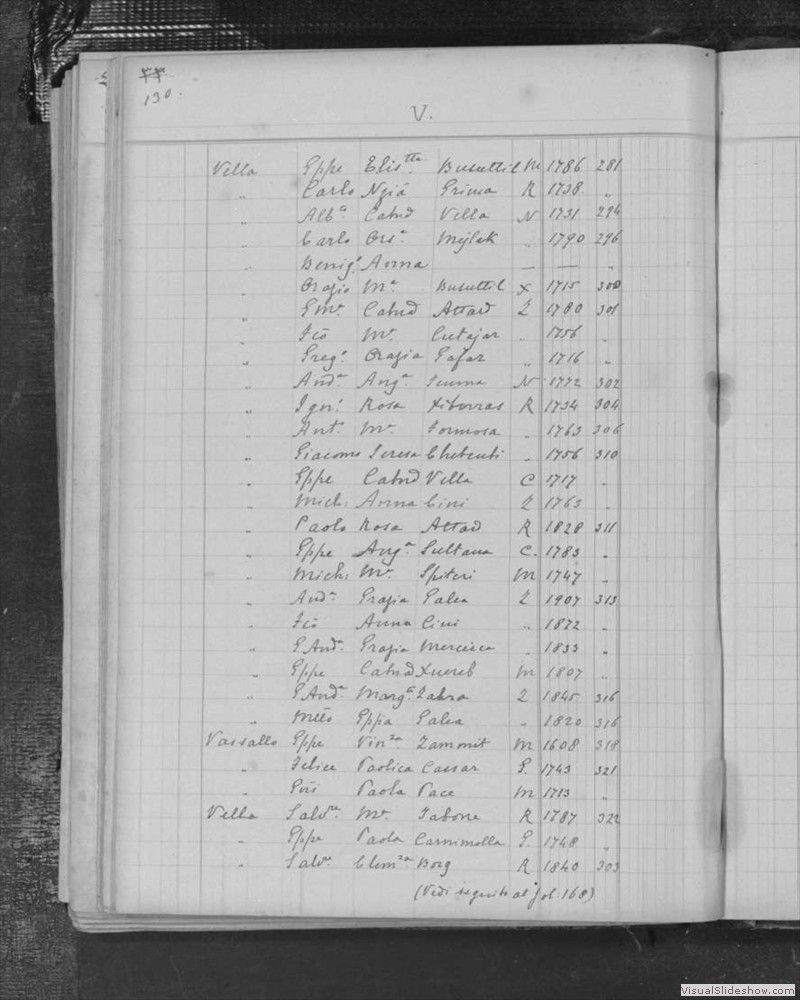 130.
V.
Vella Gppe Elis.tta Busuttil M 1786 281
„ Carlo Ngiã Grima R 1738 „
„ Alb.o Catnã Vella N 1731 294
„ Carlo Ors.a Mejlak „ 1790 296
„ Benig.o Anna — — „
„ Orazio M.a Busuttil X 1715 300
„ G.M. Catnã Attard Z 1780 301
„ Fcõ M.a Cutajar „ 1756 „
„ Greg.o Grazia Gafar „ 1716 „
„ And.a Ang.a N 1772 302
„ Ign.o Rosa Xiberras R 1734 304
„ Ant.o M.a Formosa „ 1763 306
„ Giacomo Teresa Chetcuti „ 1756 310
„ Gppe Catnã Vella C 1717 „
„ Mich: Anna Cini Z 1763 „
„ Paolo Rosa Attard R 1828 311
„ Gppe Ang.a Sultana C. 1783 „
„ Mich: M.a Spiteri M 1747 „
„ And.a Grazia Galea Z 1907 313
„ Fcõ Anna Cini „ 1872 „
„ G And.a Grazia Mercieca „ 1833 „
„ Gppe Catnã Xuereb M 1807 „
„ G And.a Marg.a Zahra Z 1845 316
„ Mttõ Gppa Galea „ 1820 316
Vassallo Gppe Vin.za Zammit M 1608 318
„ Felice Paolica Caesar G. 1743 321
„ Paola Pace M 1713 „
Vella Salv.re M.a Tabone R 1787 322
„ Gppe Paola Carnimolla G. 1748 „
„ Salv.re Clem.za Borg R 1840 303
(Vedi seguito al fol. 168)
VisualSlideshow.com